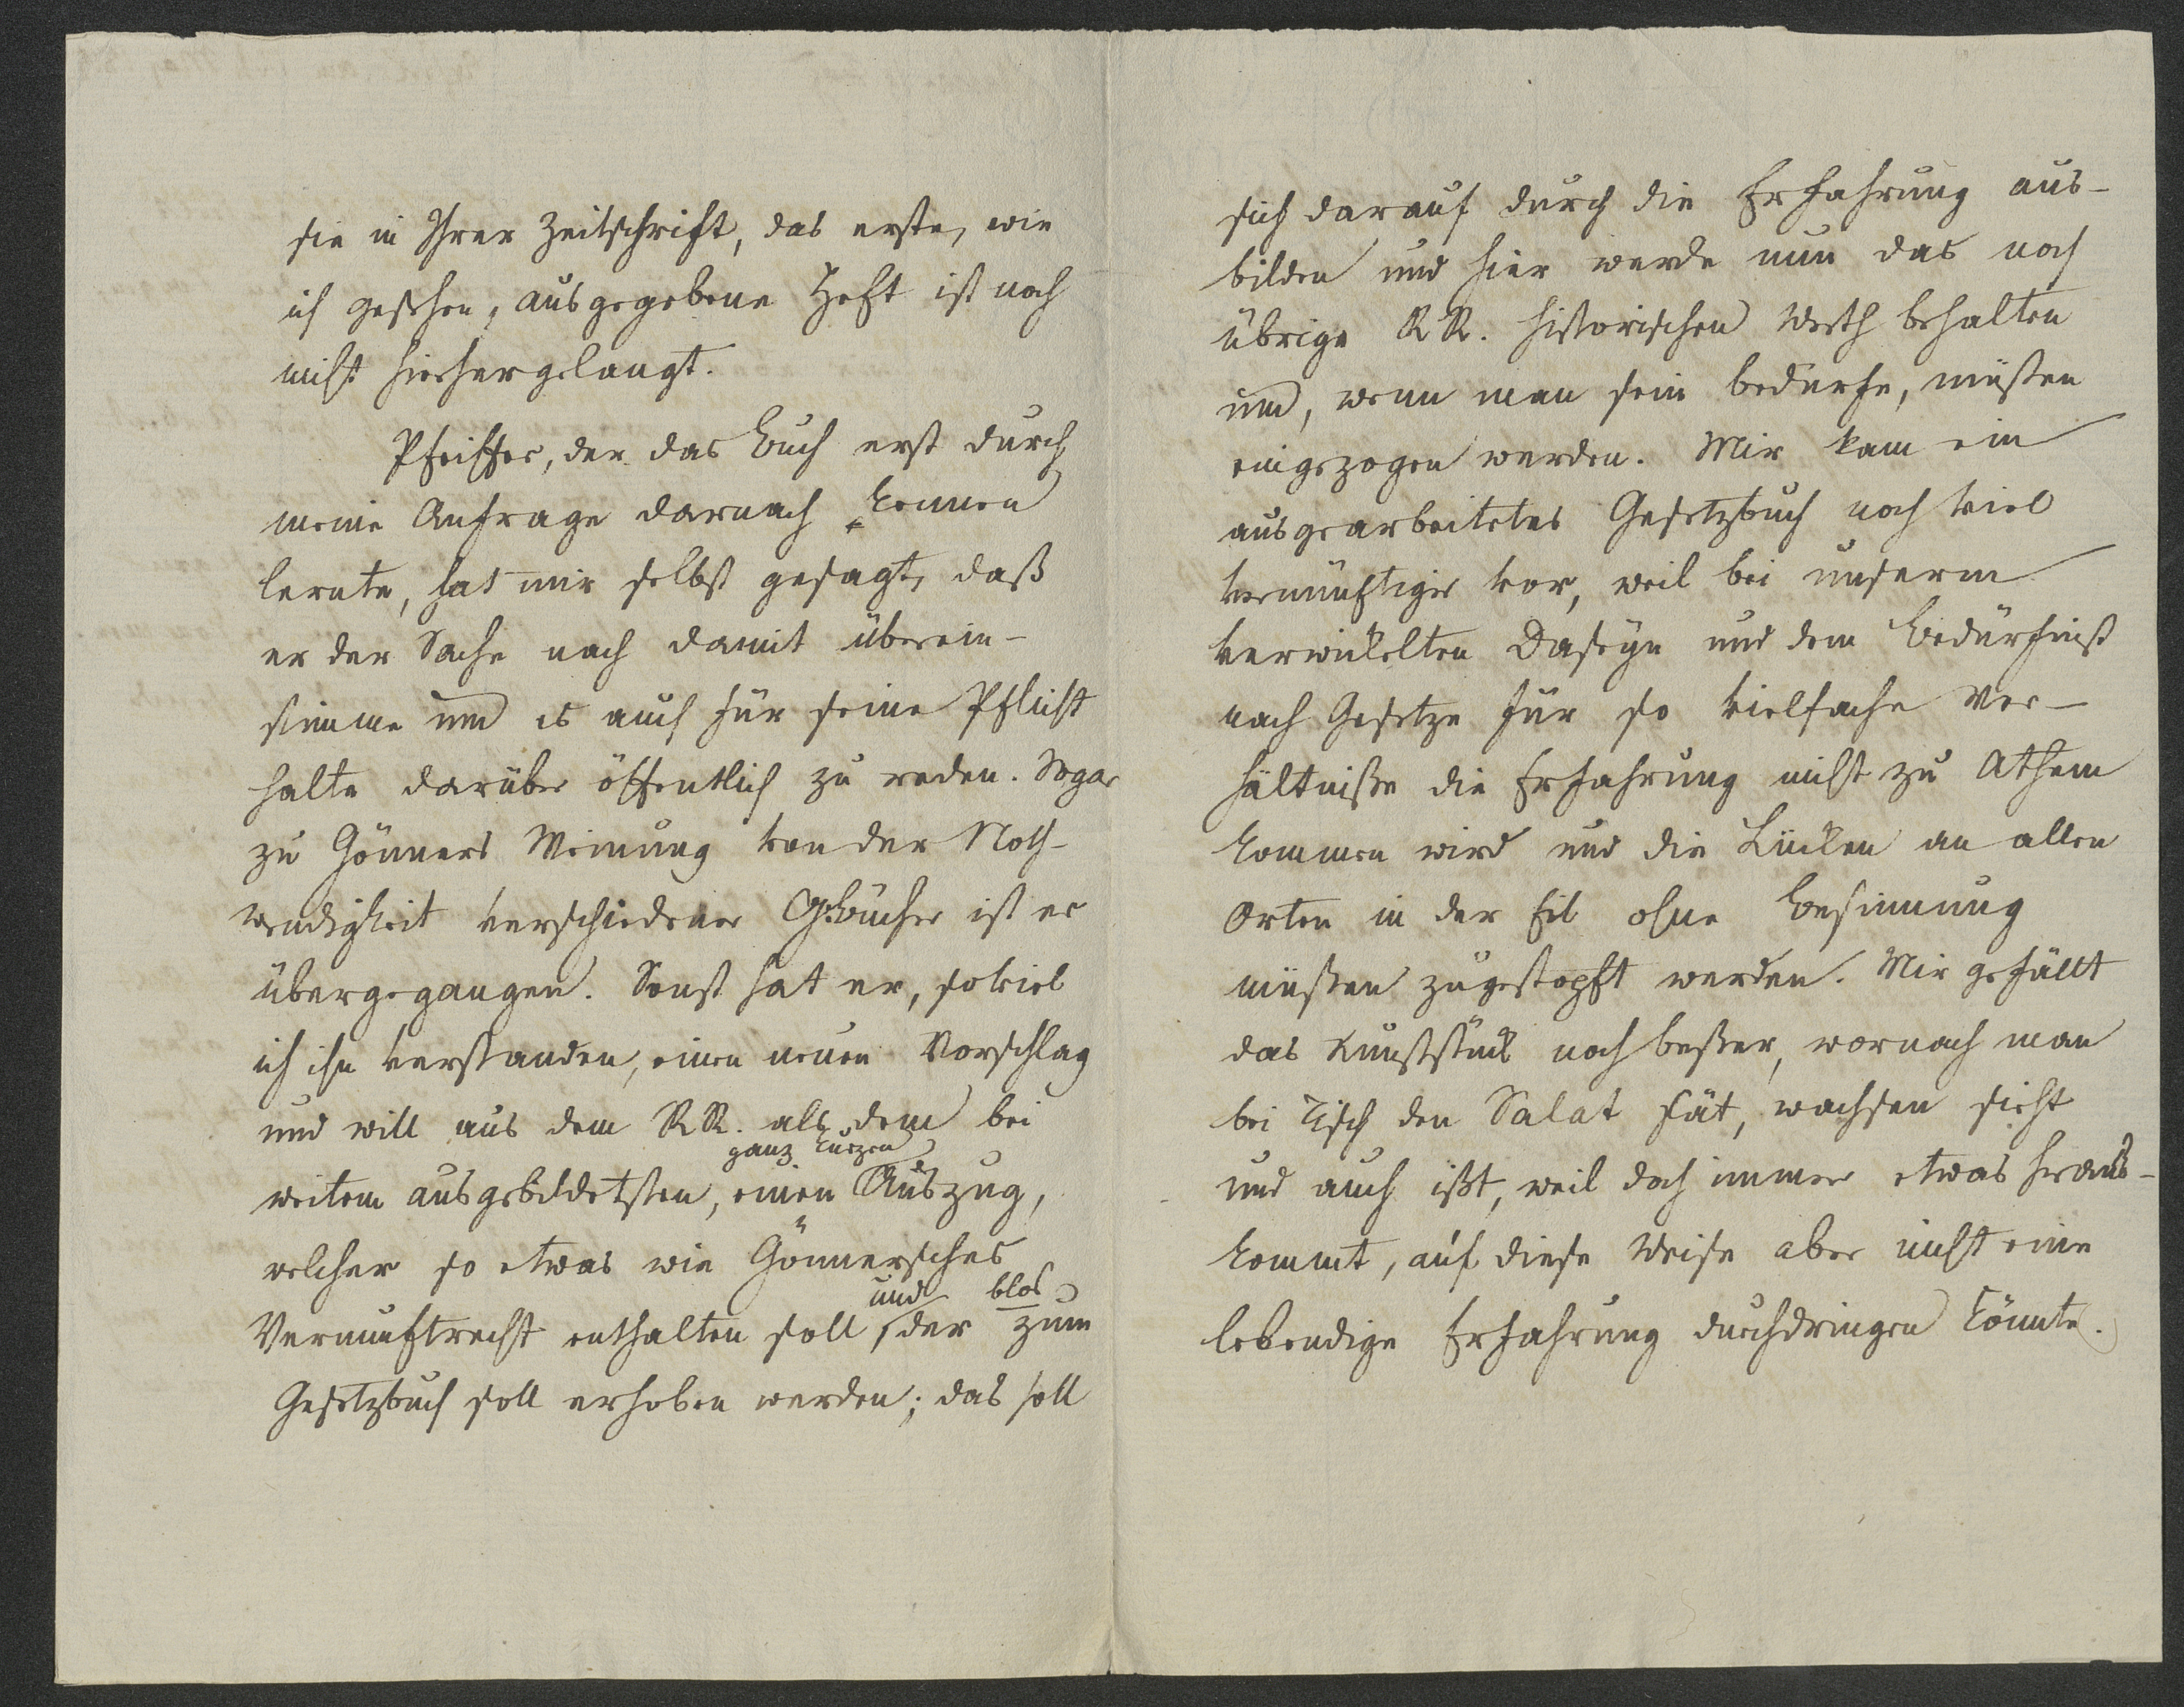 sie in Ihrer Zeitschrift, das erste, wie
ich gesehen, ausgegebene Heft ist noch
nicht hierher gelangt.
Pfeiffer, der das Buch erst durch
meine Anfrage darnach kennen
lernte, hat mir selbst gesagt, daß
er der Sache nach damit überein-
stimme und es auch für seine Pflicht
halte darüber öffentlich zu reden. Sogar
zu Gönners Meinung von der Noth-
wendigkeit verschiedener GBücher ist er
übergegangen. Sonst hat er, soviel
ich ihn verstanden, einen neuen Vorschlag
und will aus dem RR. als dem bei
ganz kurzen
weitem ausgebildetsten, einen Auszug,
welcher so etwas wie Gönnersches
und blos
Vernunftrecht enthalten soll, der zum
Gesetzbuch soll erhoben werden; das soll
sich darauf durch die Erfahrung aus-
bilden und hier werde nun das noch
übrige RR. historischen Werth behalten
und, wenn man sein bedürfe, müßen
eingezogen werden. Mir kam ein
ausgearbeitetes Gesetzbuch noch viel
vernünftiger vor, weil bei unserm
verwickelten Daseyn und dem Bedürfniß
nach Gesetze für so vielfache Ver-
hältniße die Erfahrung nicht zu Athem
kommen wird und die Lücken an allen
Orten in der Eil ohne Besinnung
müßen zugestopft werden. Mir gefällt
das Kunststück noch beßer, wornach man
bei Tisch den Salat sät, wachsen sieht
und auch ißt, weil doch immer etwas heraus-
kommt, auf diese Weise aber nicht eine
lebendige Erfahrung durchdringen könnte.